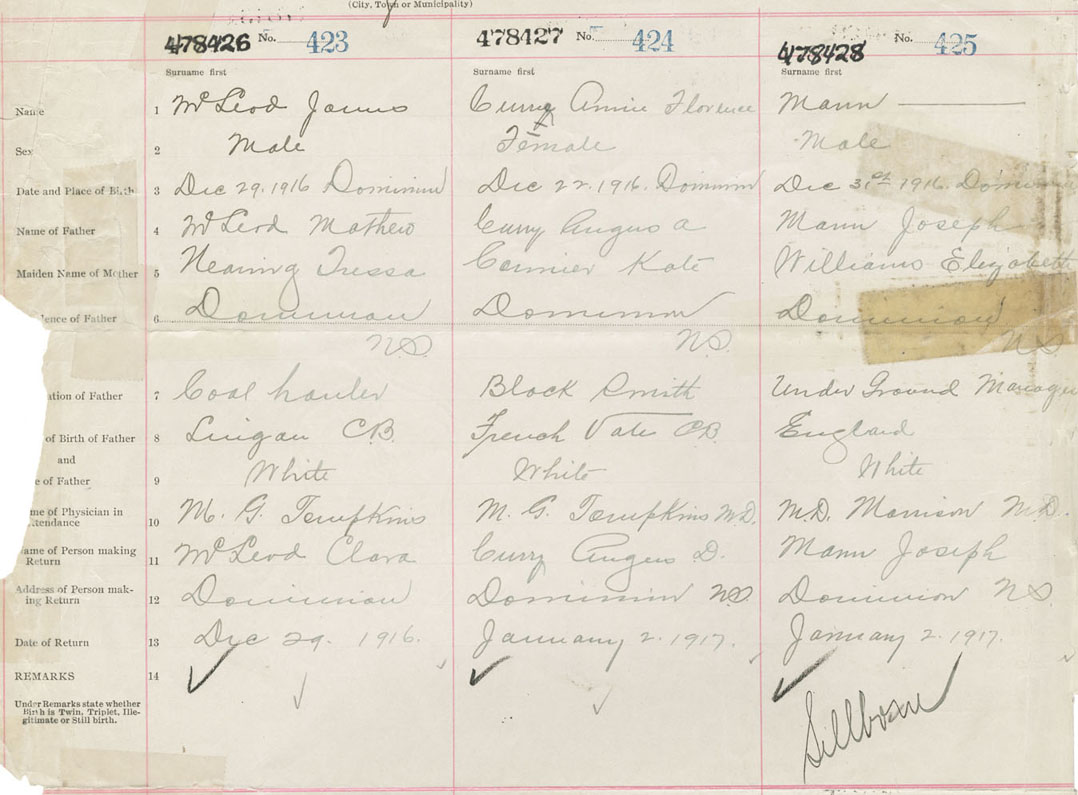 (City, Town or Municipality)
478426 No. 423 478427 No. 424 478428 No. 425
Surname first Surname first Surname first
Name 1 McLeod James Curry Annie Florence Mann
Sex 2 Male Female Male
Date and Place of Birth 3 Dec 29. 1916 Dominion Dec 22. 1916. Dominion Dec 31st 1916. Dominion
Name of Father 4 McLeod Mathew Curry Angus A Mann Joseph
Maiden Name of Mother 5 Nearing Tressa Cormier Kate Williams Elizabeth
dence of Father 6 Dominion Dominion Dominion
N.S. N.S. N.S.
ation of Father 7 Coal hauler Black Smith Under Ground Manager
of Birth of Father 8 Lingan C.B. French Vale C.B. England
and
e of Father 9 White White White
me of Physician in
ttendance 10 M. G. Tompkins M. G. Tompkins M.D. M.D. Morrison M.D.
ame of Person making
Return 11 McLeod Clara Curry Angus D. Mann Joseph
Address of Person mak-
ing Return 12 Dominion Dominion N.S. Dominion N.S.
Date of Return 13 Dec 29. 1916. January 2. 1917. January 2. 1917.
REMARKS 14
Under Remarks state whether
Birth is Twin, Triplet, Ille-
gitimate or Still birth.
Sillborn